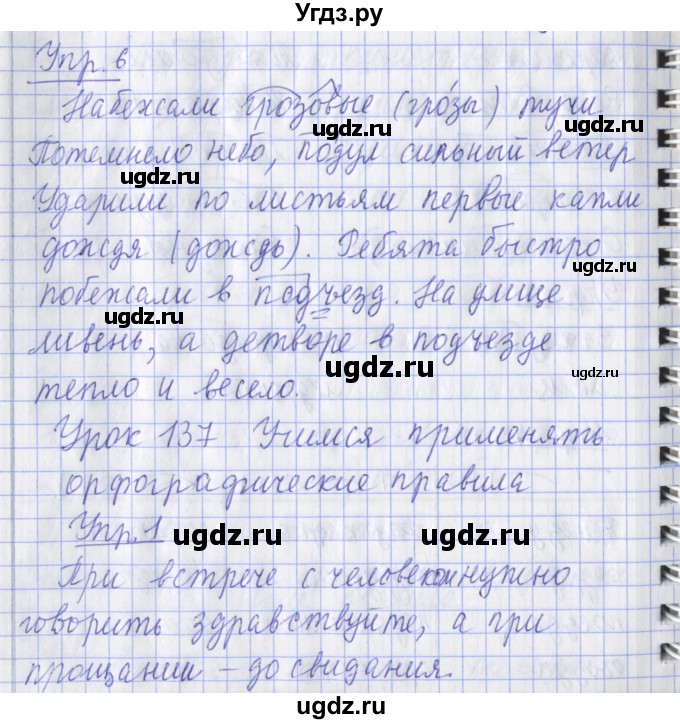 Угдз.ру
Упр. 6
Набежали грозовые (гро́зы) тучи.
Потемнело небо, подул сильный ветер
Ударили по листьям первые капли
дождя (дождь). Ребята быстро
побежали в подъезд. На улице
ливень, а детворе в подъезде
тепло и весело.
Урок 137 Учимся применять
орфографические правила
Упр. 1
При встрече с человеком нужно
говорить здравствуйте, а при
прощании – до свидания.
ugdz.ru
ugdz.ru
ugdz.ru
ugdz.ru
ugdz.ru
ugdz.ru
ugdz.ru
ugdz.ru
ugdz.ru
ugdz.ru
ugdz.ru
ugdz.ru